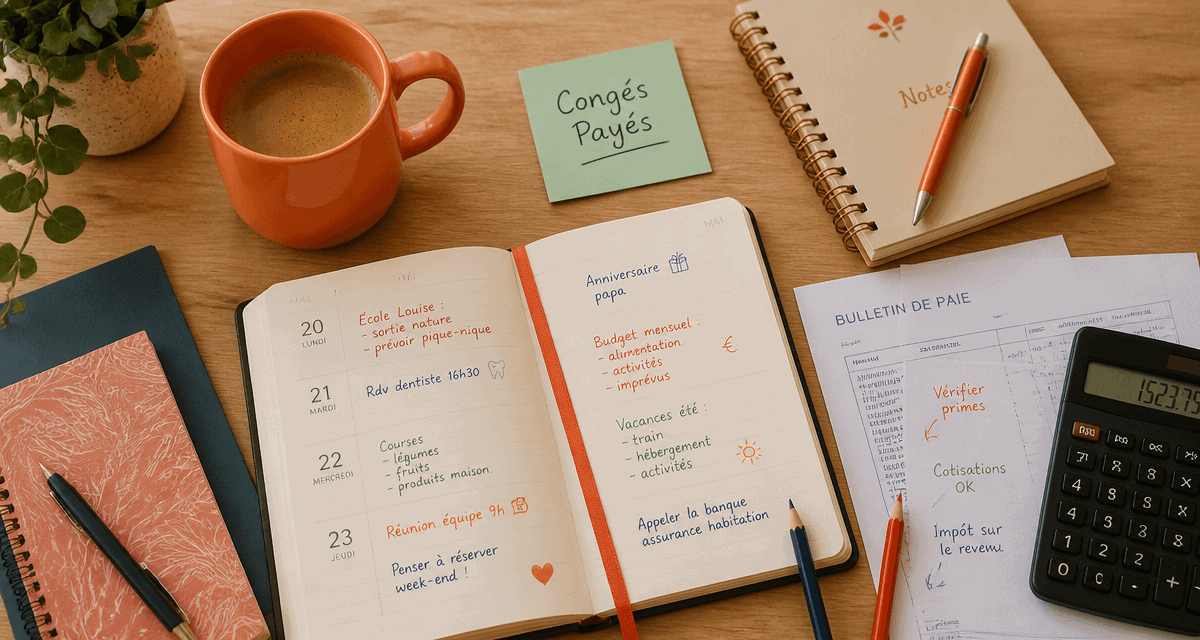 Congés
Payés
Notes
MAI
20
LUNDI
École Louise :
- sortie nature
- prévoir pique-nique
21
MARDI
Rdv dentiste 16h30
22
MERCREDI
Courses
- légumes
- fruits
- produits maison.
23
JEUDI
Réunion équipe 9h
Penser à réserver
week-end !
MAI
Anniversaire
papa
Budget mensuel :
- alimentation
- activités
- imprévus
€
Vacances été :
- train
- hébergement
- activités
Appeler la banque
assurance habitation
BULLETIN DE PAIE
Vérifier
primes
Cotisations
OK
Impôt sur
le revenu
1523.75
7 8 8 X
4 8 8 X
4 8 8
1 2 2
0 C - +